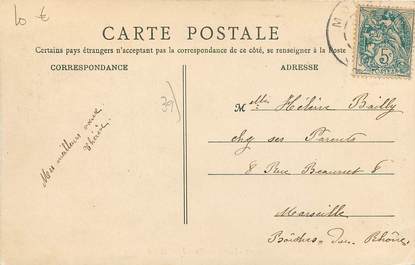 10 €
CARTE POSTALE
Certains pays étrangers n'acceptant pas la correspondance de ce côté, se renseigner à la Poste
CORRESPONDANCE
ADRESSE
39
Mes meilleurs vœux
Mlle Hélène Bailly
chez ses Parents
8 Rue 8
Marseille
Bouches-du-Rhône
5c